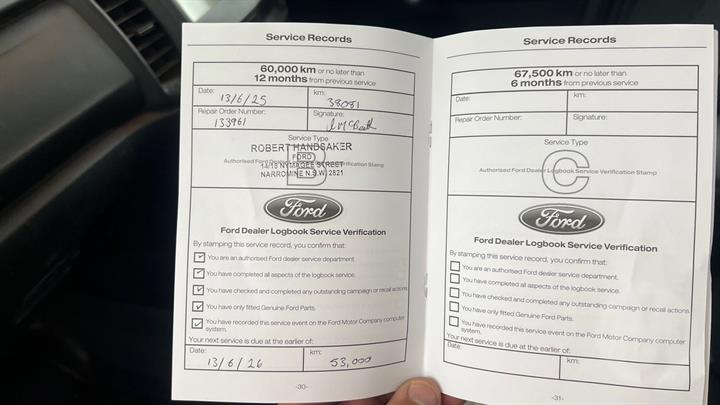 Service Records
60,000 km or no later than
12 months from previous service
Date:
13/6/25
km:
38081
Repair Order Number:
133961
Signature:
Service Type
B
ROBERT HANDSAKER
FORD
14/18 NYMAGEE STREET
NARROMINE N.S.W. 2821
Authorised Ford Dealer Logbook Service Verification Stamp
Ford
Ford Dealer Logbook Service Verification
By stamping this service record, you confirm that:
You are an authorised Ford dealer service department.
You have completed all aspects of the logbook service.
You have checked and completed any outstanding campaign or recall actions.
You have only fitted Genuine Ford Parts.
You have recorded this service event on the Ford Motor Company computer
system.
Your next service is due at the earlier of:
Date:
13/6/26
km:
53,000
-30-
Service Records
67,500 km or no later than
6 months from previous service
Date:
km:
Repair Order Number:
Signature:
Service Type
C
Authorised Ford Dealer Logbook Service Verification Stamp
Ford
Ford Dealer Logbook Service Verification
By stamping this service record, you confirm that:
You are an authorised Ford dealer service department.
You have completed all aspects of the logbook service.
You have checked and completed any outstanding campaign or recall actions.
You have only fitted Genuine Ford Parts.
You have recorded this service event on the Ford Motor Company computer
system.
Your next service is due at the earlier of:
Date:
km:
-31-